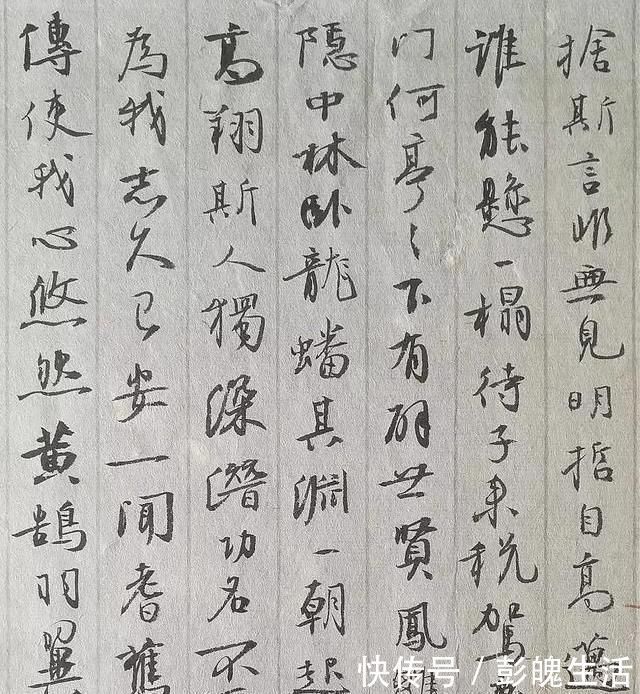 捨斯言非無見明哲自高
誰能懸一榻待子来税駕
门何亭々下有辟世賢鳳雛
隱中林卧龍蟠其淵一朝起
高翔斯人獨深潛功名不
為我志久已安一聞耆舊
傳使我心悠然黄鵠羽翼
快传号 / 彭魄生活